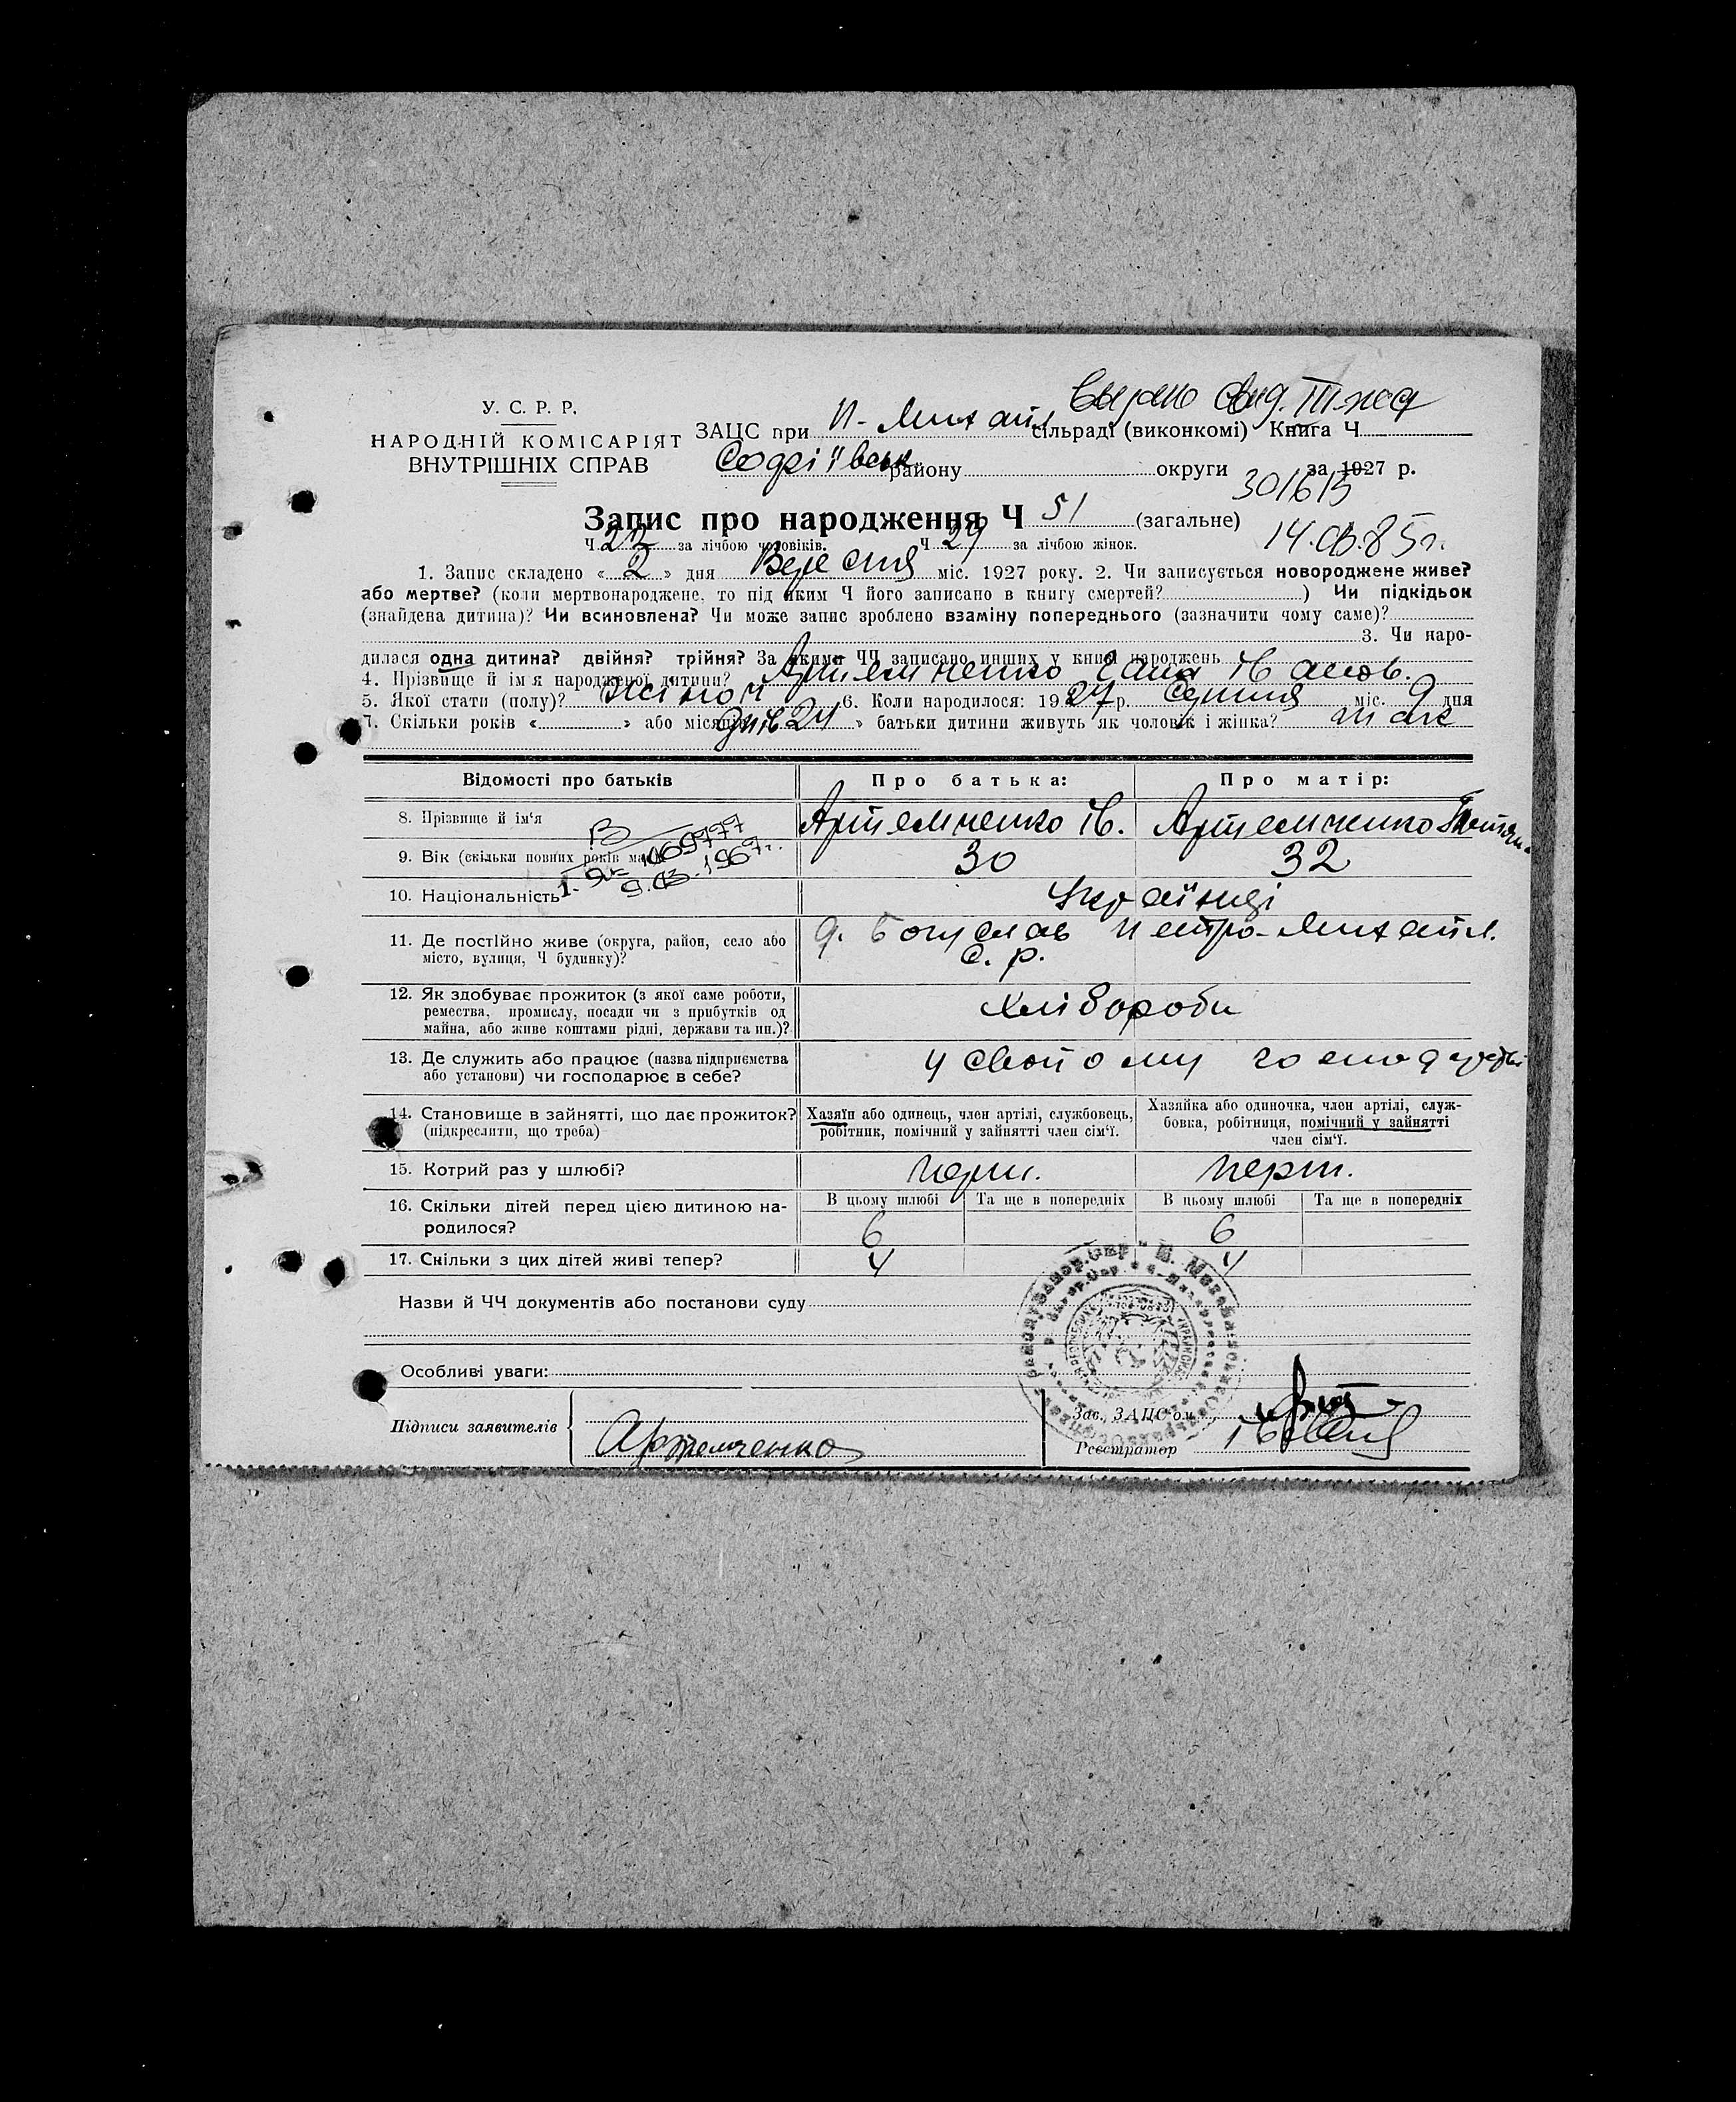 У. С. Р. Р.
НАРОДНІЙ КОМІСАРІЯТ
ВНУТРІШНІХ СПРАВ
ЗАЦС при П-Михайл сільраді (виконкомі) Книга Ч
Софіївськ району округи за 1927 р.
Запис про народження Ч 51 (загальне)
14.08.85г.
Ч 22 за лічбою чоловіків. Ч 29 за лічбою жінок.
1. Запис складено « 2 » дня Вересня міс. 1927 року. 2. Чи записується новороджене живе?
або мертве? (коли мертвонароджене, то під яким Ч його записано в книгу смертей? ) Чи підкідьок
(знайдена дитина)? Чи всиновлена? Чи може запис зроблено взаміну попереднього (зазначити чому саме)?
3. Чи наро-
дилася одна дитина? двійня? трійня? За якими ЧЧ записано инших у книзі народжень
4. Прізвище й ім'я народженої дитини? Артемченко Ів анов.
5. Якої стати (полу)? жіноч 6. Коли народилося: 1927 р. Серпня міс. 9 дня
7. Скільки років « » або місяців днів 24 » батьки дитини живуть як чоловік і жінка? так
Відомості про батьків
Про батька:
Про матір:
8. Прізвище й ім'я
Артемченко Ів.
Артемченко Тетян.
9. Вік (скільки повних років має)
30
32
9.03.1967г.
10. Національність
Українці
11. Де постійно живе (округа, район, село або
місто, вулиця, Ч будинку)?
д. Богуслав Петро-Михайл.
с. р.
12. Як здобуває прожиток (з якої саме роботи,
ремества, промислу, посади чи з прибутків од
майна, або живе коштами рідні, держави та ин.)?
Хлібороби
13. Де служить або працює (назва підприємства
або установи) чи господарює в себе?
у свойому господарстві
14. Становище в зайнятті, що дає прожиток?
(підкреслити, що треба)
Хазяїн або одинець, член артілі, службовець,
робітник, помічний у зайнятті член сім'ї.
Хазяйка або одиночка, член артілі, служ-
бовка, робітниця, помічний у зайнятті
член сім'ї.
15. Котрий раз у шлюбі?
перш.
перш.
16. Скільки дітей перед цією дитиною на-
родилося?
В цьому шлюбі
Та ще в попередніх
В цьому шлюбі
Та ще в попередніх
6
6
17. Скільки з цих дітей живі тепер?
4
4
Назви й ЧЧ документів або постанови суду
Особливі уваги:
Підписи заявителів
Артемченко
Зав. ЗАЦС'ом
Реєстратор